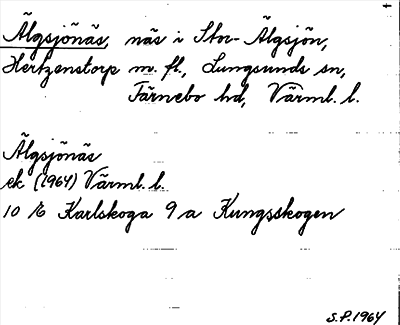 Älgsjönäs, näs i Stor-Älgsjön,
Hertzenstorp m. fl., Lungsunds sn,
Färnebo hd, Värml. l.
Älgsjönäs
ek (1964) Värml. l.
10 E Karlskoga 9 a Kungsskogen
S.P. 1964